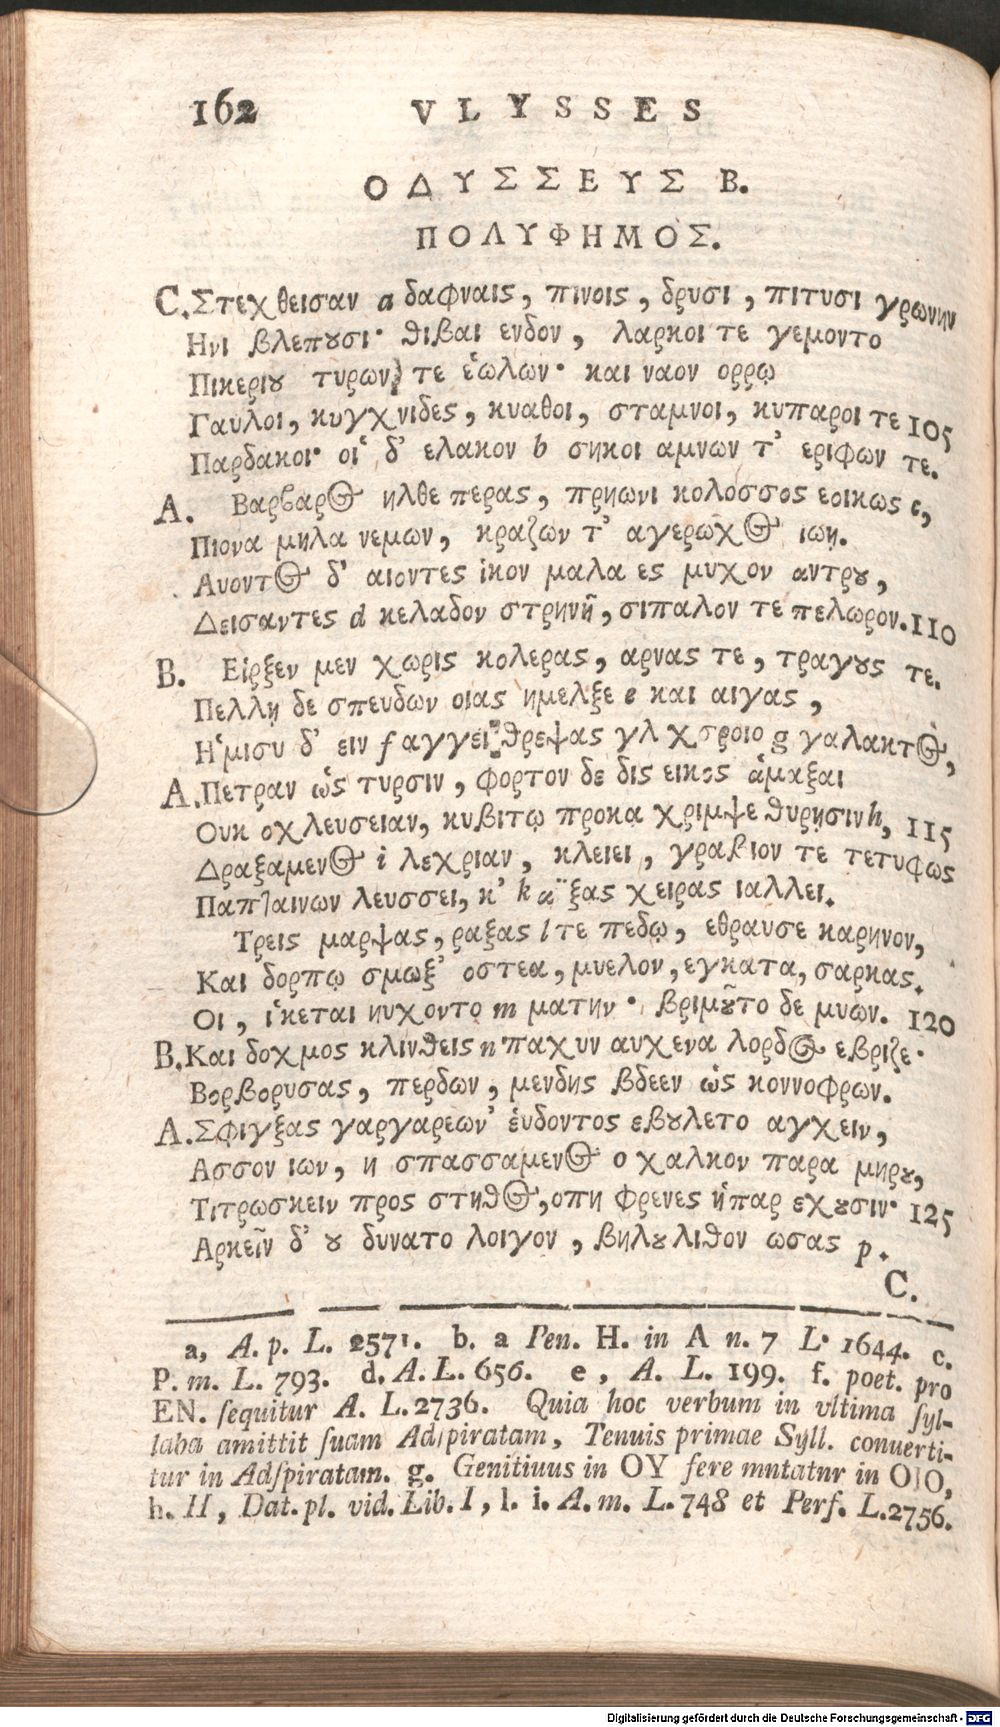 162 VLYSSES
ΟΔΥΣΣΕΥΣ Β.
ΠΟΛΥΦΗΜΟΣ.
C. Στεχθεισαν a δαφναις, πινοις, δρυσι, πιτυσι γρωνην
Ηνι βλεπουσι· θιβαι ενδον, λαρκοι τε γεμοντο
Πικεριου τυρων τε ἑωλων· και ναον ορρῳ
Γαυλοι, κυγχνιδες, κυαθοι, σταμνοι, κυπαροι τε 105
Παρδακοι· οἱ δ' ελακον b σηκοι αμνων τ' εριφων τε.
A. Βαρβαρος ηλθε περας, πρηωνι κολοσσος εοικως c,
Πιονα μηλα νεμων, κραζων τ' αγερωχος ιωῃ.
Αυοντος δ' αιοντες ἱκον μαλα ες μυχον αντρου,
Δεισαντες d κελαδον στρηνῆ, σιπαλον τε πελωρον. 110
B. Εἱρξεν μεν χωρις κολερας, αρνας τε, τραγους τε.
Πελλῃ δε σπευδων οιας ημελξε e και αιγας,
Ἡμισυ δ' ειν f αγγει θρεψας γλ χσροιο g γαλακτος,
A. Πετραν ὡς τυρσιν, φορτον δε δις εικος ἁμαξαι
Ουκ οχλευσειαν, κυβιτῳ προκᾳ χριμψε θυρῃσιν h, 115
Δραξαμενος i λεχριαν, κλειει, γραβιον τε τετυφως
Παπταινων λευσσει, κ' k αϊξας χειρας ιαλλει.
Τρεις μαρψας, ραξας l τε πεδῳ, εθραυσε καρηνον,
Και δορπῳ σμωξ' οστεα, μυελον, εγκατα, σαρκας.
Οι, ἱκεται ηυχοντο m ματην· βριμοῦτο δε μυων. 120
B. Και δοχμος κλινθεις n παχυν αυχενα λορδος εβριζε·
Βορβορυσας, περδων, μενδης βδεεν ὡς κοννοφρων.
A. Σφιγξας γαργαρεων' ἑυδοντος εβουλετο αγχειν,
Ασσον ιων, η σπασσαμενος ο χαλκον παρα μηρου,
Τιτρωσκειν προς στηθος, οπη φρενες ἡπαρ εχουσιν· 125
Αρκεῖν δ' ου δυνατο λοιγον, βηλου λιθον ωσας p.
C.
a, A. p. L. 2571. b. a Pen. H. in A n. 7 L. 1644. c.
P. m. L. 793. d. A. L. 656. e, A. L. 199. f. poet. pro
EN. sequitur A. L. 2736. Quia hoc verbum in vltima syl-
laba amittit suam Adspiratam, Tenuis primae Syll. conuerti-
tur in Adspiratam. g. Genitiuus in OY fere mntatnr in OJO,
h. H, Dat. pl. vid. Lib. I, l. i. A. m. L. 748 et Perf. L. 2756.
Digitalisierung gefördert durch die Deutsche Forschungsgemeinschaft - DFG